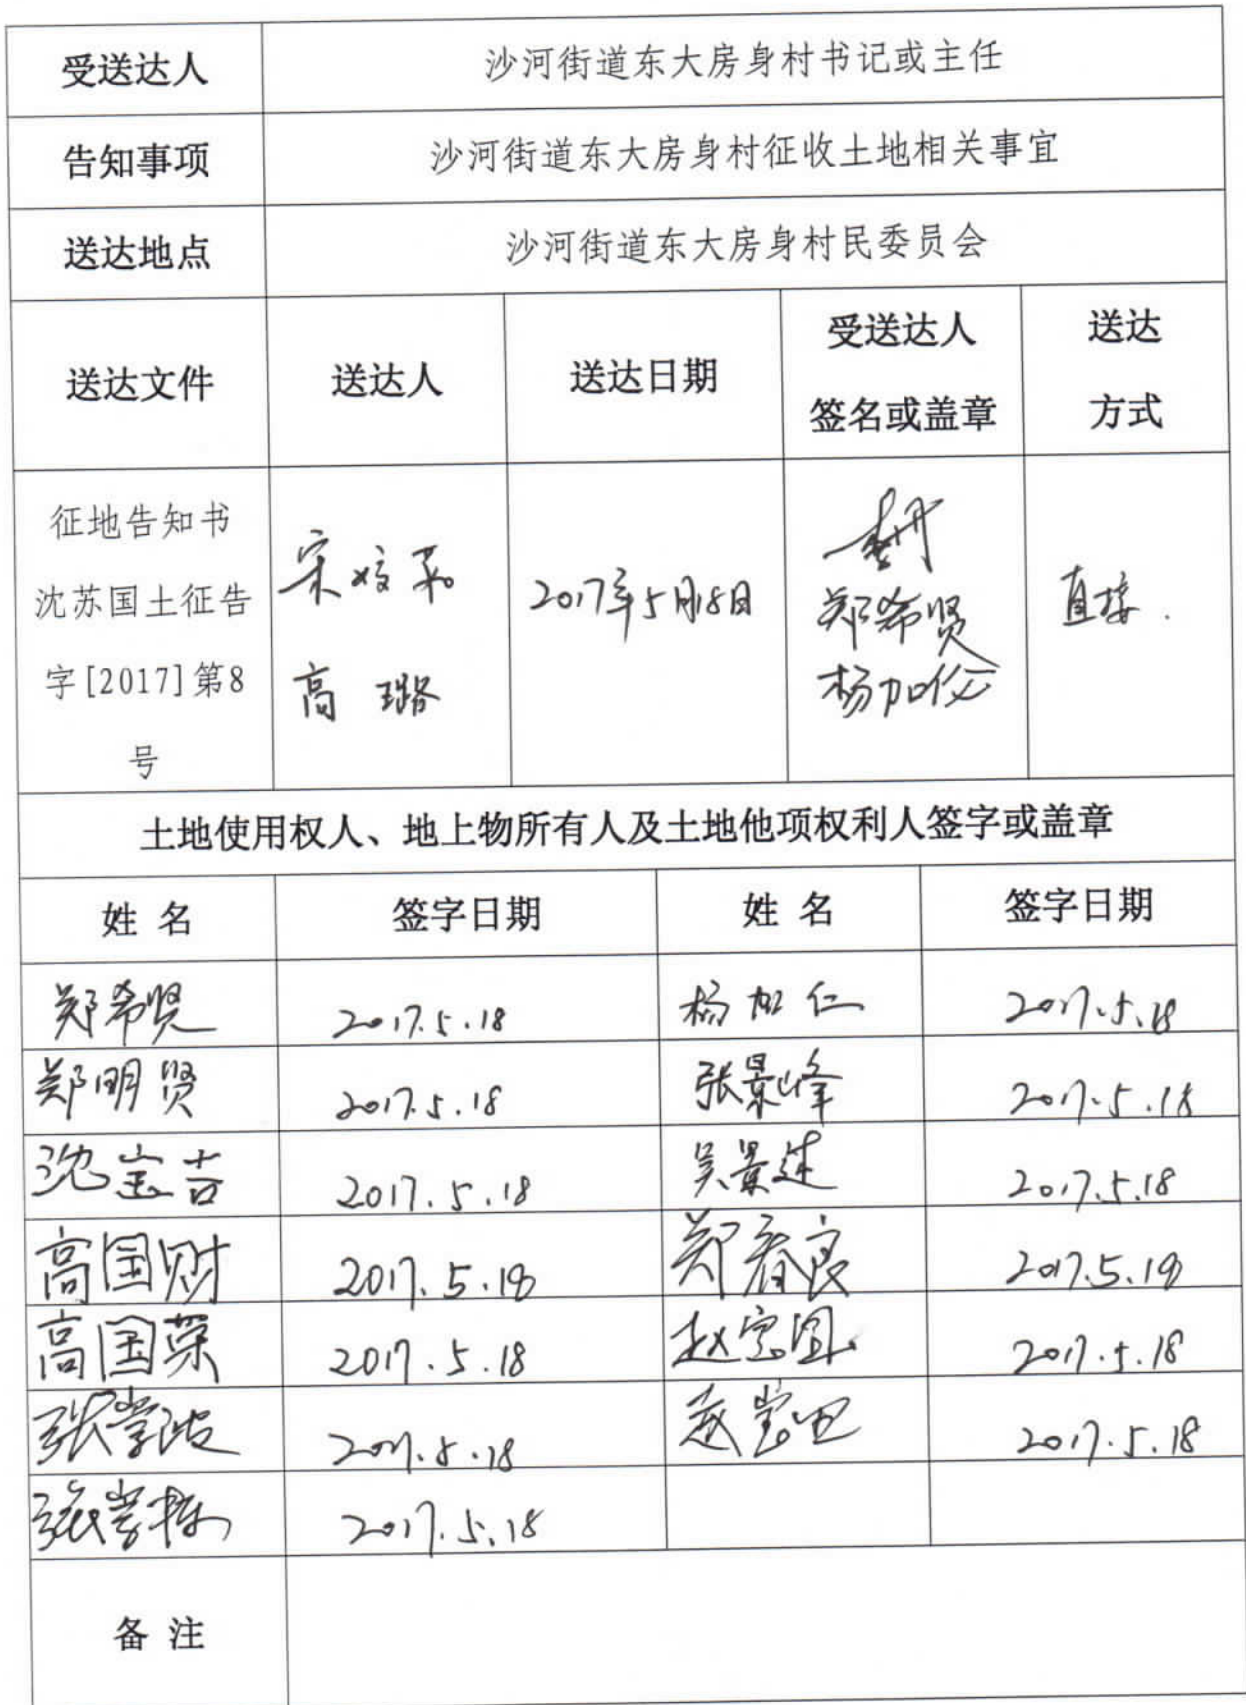 受送达人 沙河街道东大房身村书记或主任
告知事项 沙河街道东大房身村征收土地相关事宜
送达地点 沙河街道东大房身村民委员会
送达文件 送达人 送达日期 受送达人 签名或盖章 送达 方式
征地告知书
沈苏国土征告
字[2017]第8
号
宋姣
高璐
2017年5月18日
郑希贤
杨加仁
直接.
土地使用权人、地上物所有人及土地他项权利人签字或盖章
姓 名 签字日期 姓 名 签字日期
郑希贤 2017.5.18 杨加仁 2017.5.18
郑明贤 2017.5.18 张景峰 2017.5.18
沈宝吉 2017.5.18 吴景 2017.5.18
高国财 2017.5.18 郑春良 2017.5.18
高国荣 2017.5.18 赵 2017.5.18
张学 2017.5.18 赵 2017.5.18
张学栋 2017.5.18
备 注